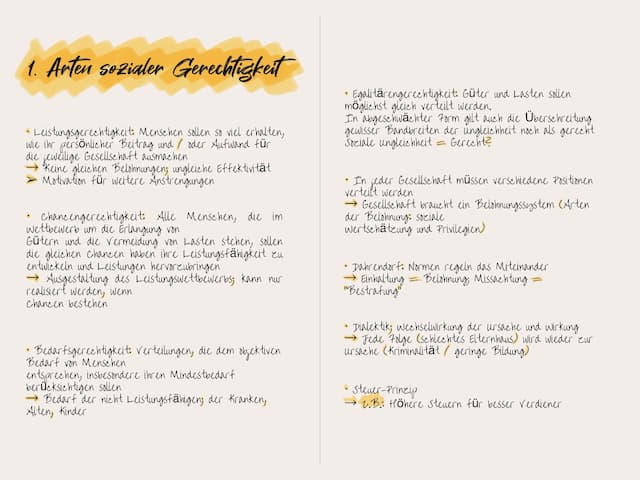 1. Arten sozialer Gerechtigkeit
• Leistungsgerechtigkeit: Menschen sollen so viel erhalten,
wie ihr persönlicher Beitrag und / oder Aufwand für
die jeweilige Gesellschaft ausmachen
→ Keine gleichen Belohnungen; ungleiche Effektivität
➤ Motivation für weitere Anstrengungen
• Chancengerechtigkeit: Alle Menschen, die im
Wettbewerb um die Erlangung von
Gütern und die Vermeidung von Lasten stehen, sollen
die gleichen Chancen haben ihre Leistungsfähigkeit zu
entwickeln und Leistungen hervorzubringen
→ Ausgestaltung des Leistungswettbewerbs; kann nur
realisiert werden, wenn
Chancen bestehen
• Bedarfsgerechtigkeit: Verteilungen, die dem objektiven
Bedarf von Menschen
entsprechen, insbesondere ihren Mindestbedarf
berücksichtigen sollen
→ Bedarf der nicht Leistungsfähigen; der Kranken,
Alten, Kinder
• Egalitärengerechtigkeit: Güter und Lasten sollen
möglichst gleich verteilt werden.
In abgeschwächter Form gilt auch die Überschreitung
gewisser Bandbreiten der Ungleichheit noch als gerecht
Soziale Ungleichheit = Gerecht?
• In jeder Gesellschaft müssen verschiedene Positionen
verteilt werden
→ Gesellschaft braucht ein Belohnungssystem (Arten
der Belohnung: soziale
Wertschätzung und Privilegien)
• Dahrendorf: Normen regeln das Miteinander
→ Einhaltung = Belohnung; Missachtung =
"Bestrafung"
• Dialektik; Wechselwirkung der Ursache und Wirkung
→ Jede Folge (schlechtes Elternhaus) wird wieder zur
Ursache (Kriminalität / geringe Bildung)
• Steuer-Prinzip
→ z.B.: Höhere Steuern für besser Verdiener